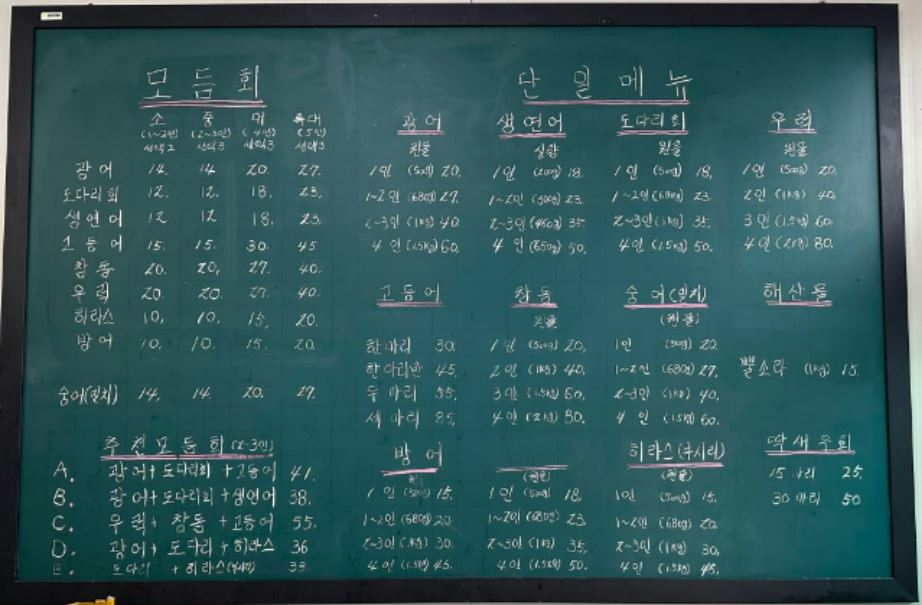 모듬회
소 중 대 특대
(1~2인) (2~3인) (4인) (5인)
선택2 선택3 선택3 선택3
광어 14. 14. 20. 27.
도다리회 12. 12. 18. 23.
생연어 12 12 18. 23.
고등어 15. 15. 30. 45.
참돔 20. 20. 27. 40.
우럭 20. 20. 27. 40.
히라스 10. 10. 15. 20.
방어 10. 10. 15. 20.
숭어(밀치) 14. 14. 20. 27.
추천모듬회 (2~3인)
A. 광어+도다리회+고등어 41.
B. 광어+도다리회+생연어 38.
C. 우럭+참돔+고등어 55.
D. 광어+도다리+히라스 36
E. 도다리+히라스 33
단일메뉴
광어
원물
1인 (500g) 20.
1~2인 (680g) 27.
2~3인 (1kg) 40.
4인 (1.5kg) 60.
생연어
실량
1인 (200g) 18.
1~2인 23.
2~3인 (450g) 35.
4인 (650g) 50.
도다리회
원물
1인 (500g) 18.
1~2인 (680g) 23.
2~3인 (1kg) 35.
4인 (1.5kg) 50.
우럭
원물
1인 (500g) 20.
2인 (1kg) 40.
3인 (1.5kg) 60.
4인 (2kg) 80.
고등어
한마리 30.
한마리반 45.
두마리 55.
세마리 85.
참돔
원물
1인 (500g) 20.
2인 (1kg) 40.
3인 (1.5kg) 60.
4인 (2kg) 80.
숭어(밀치)
(원물)
1인 (500g) 20.
1~2인 (680g) 27.
2~3인 (1kg) 40.
4인 (1.5kg) 60.
해산물
뿔소라 (1kg) 15.
방어
1인 (500g) 15.
1~2인 (680g) 20.
2~30인 (1kg) 30.
4인 (1.5kg) 45.
(원물)
1인 (500g) 18.
1~2인 (680g) 23.
2~3인 (1kg) 35.
4인 (1.5kg) 50.
히라스(부시리)
(원물)
1인 (500g) 15.
1~2인 (680g) 20.
2~3인 (1kg) 30.
4인 (1.5kg) 45.
딱새우회
15마리 25.
30마리 50